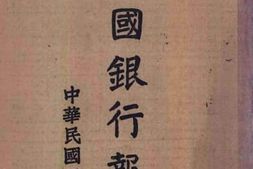 國銀行報
中華民國